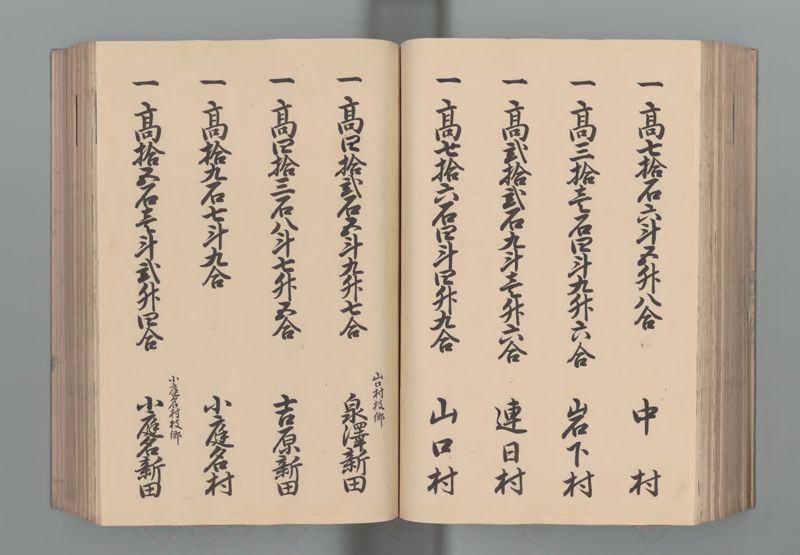 一 高七拾石六斗五升八合 中村
一 高三拾壱石四斗九升六合 岩下村
一 高弐拾弐石九斗壱升六合 連日村
一 高七拾六石四斗四升九合 山口村
山口村枝郷
一 高四拾弐石五斗九升七合 泉澤新田
一 高四拾三石八斗七升五合 吉原新田
一 高拾九石七斗九合 小庭名村
小庭名村枝郷
一 高拾五石壱斗弐升四合 小庭名新田